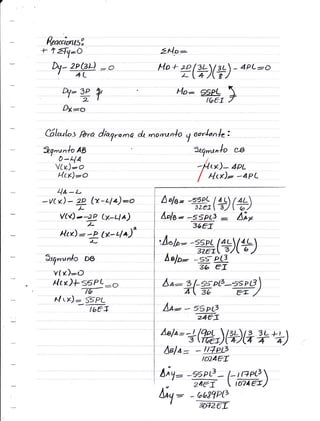 Reacciones:
+ ↑ ΣFy=0
Dy - 2P(3L)/4L = 0
Dy = 3P/2 ↑
Dx=0
ΣMD=
MD + 2P/L (3L/4)(3L/8) - 4PL=0
MD= 55PL/16EI
Cálculos para diagrama de momento y cortante:
Segmento AB
0-L/4
V(x)=0
M(x)=0
L/4-L
-V(x) - 2P/L (x-L/4)=0
V(x)=-2P/L (x-L/4)
M(x)=-P/L (x-L/4)²
Segmento DB
V(x)=0
M(x)+55PL/16=0
M(x)=-55PL/16EI
Segmento CB
-M(x)-4PL
M(x)=-4PL
ΔB/D= -55PL/32EI (4L/3)(4L/6)
ΔB/D= -55PL³/36EI = ΔAx
ΔB/D= -55PL/32EI (4L/3)(4L/6)
ΔB/D= -55PL³/36 EI
ΔA= 3/4 (-55PL³/36 -55PL³/EI)
ΔA= -55PL³/24EI
ΔB/A= -1/3 (9PL/16EI)(3L/4)(3/4 3L/4 +1/4)
ΔB/A= -117PL³/1024EI
ΔAy= -55PL³/24EI - (-117PL³/1024EI)
ΔAy= -6689PL³/3072EI